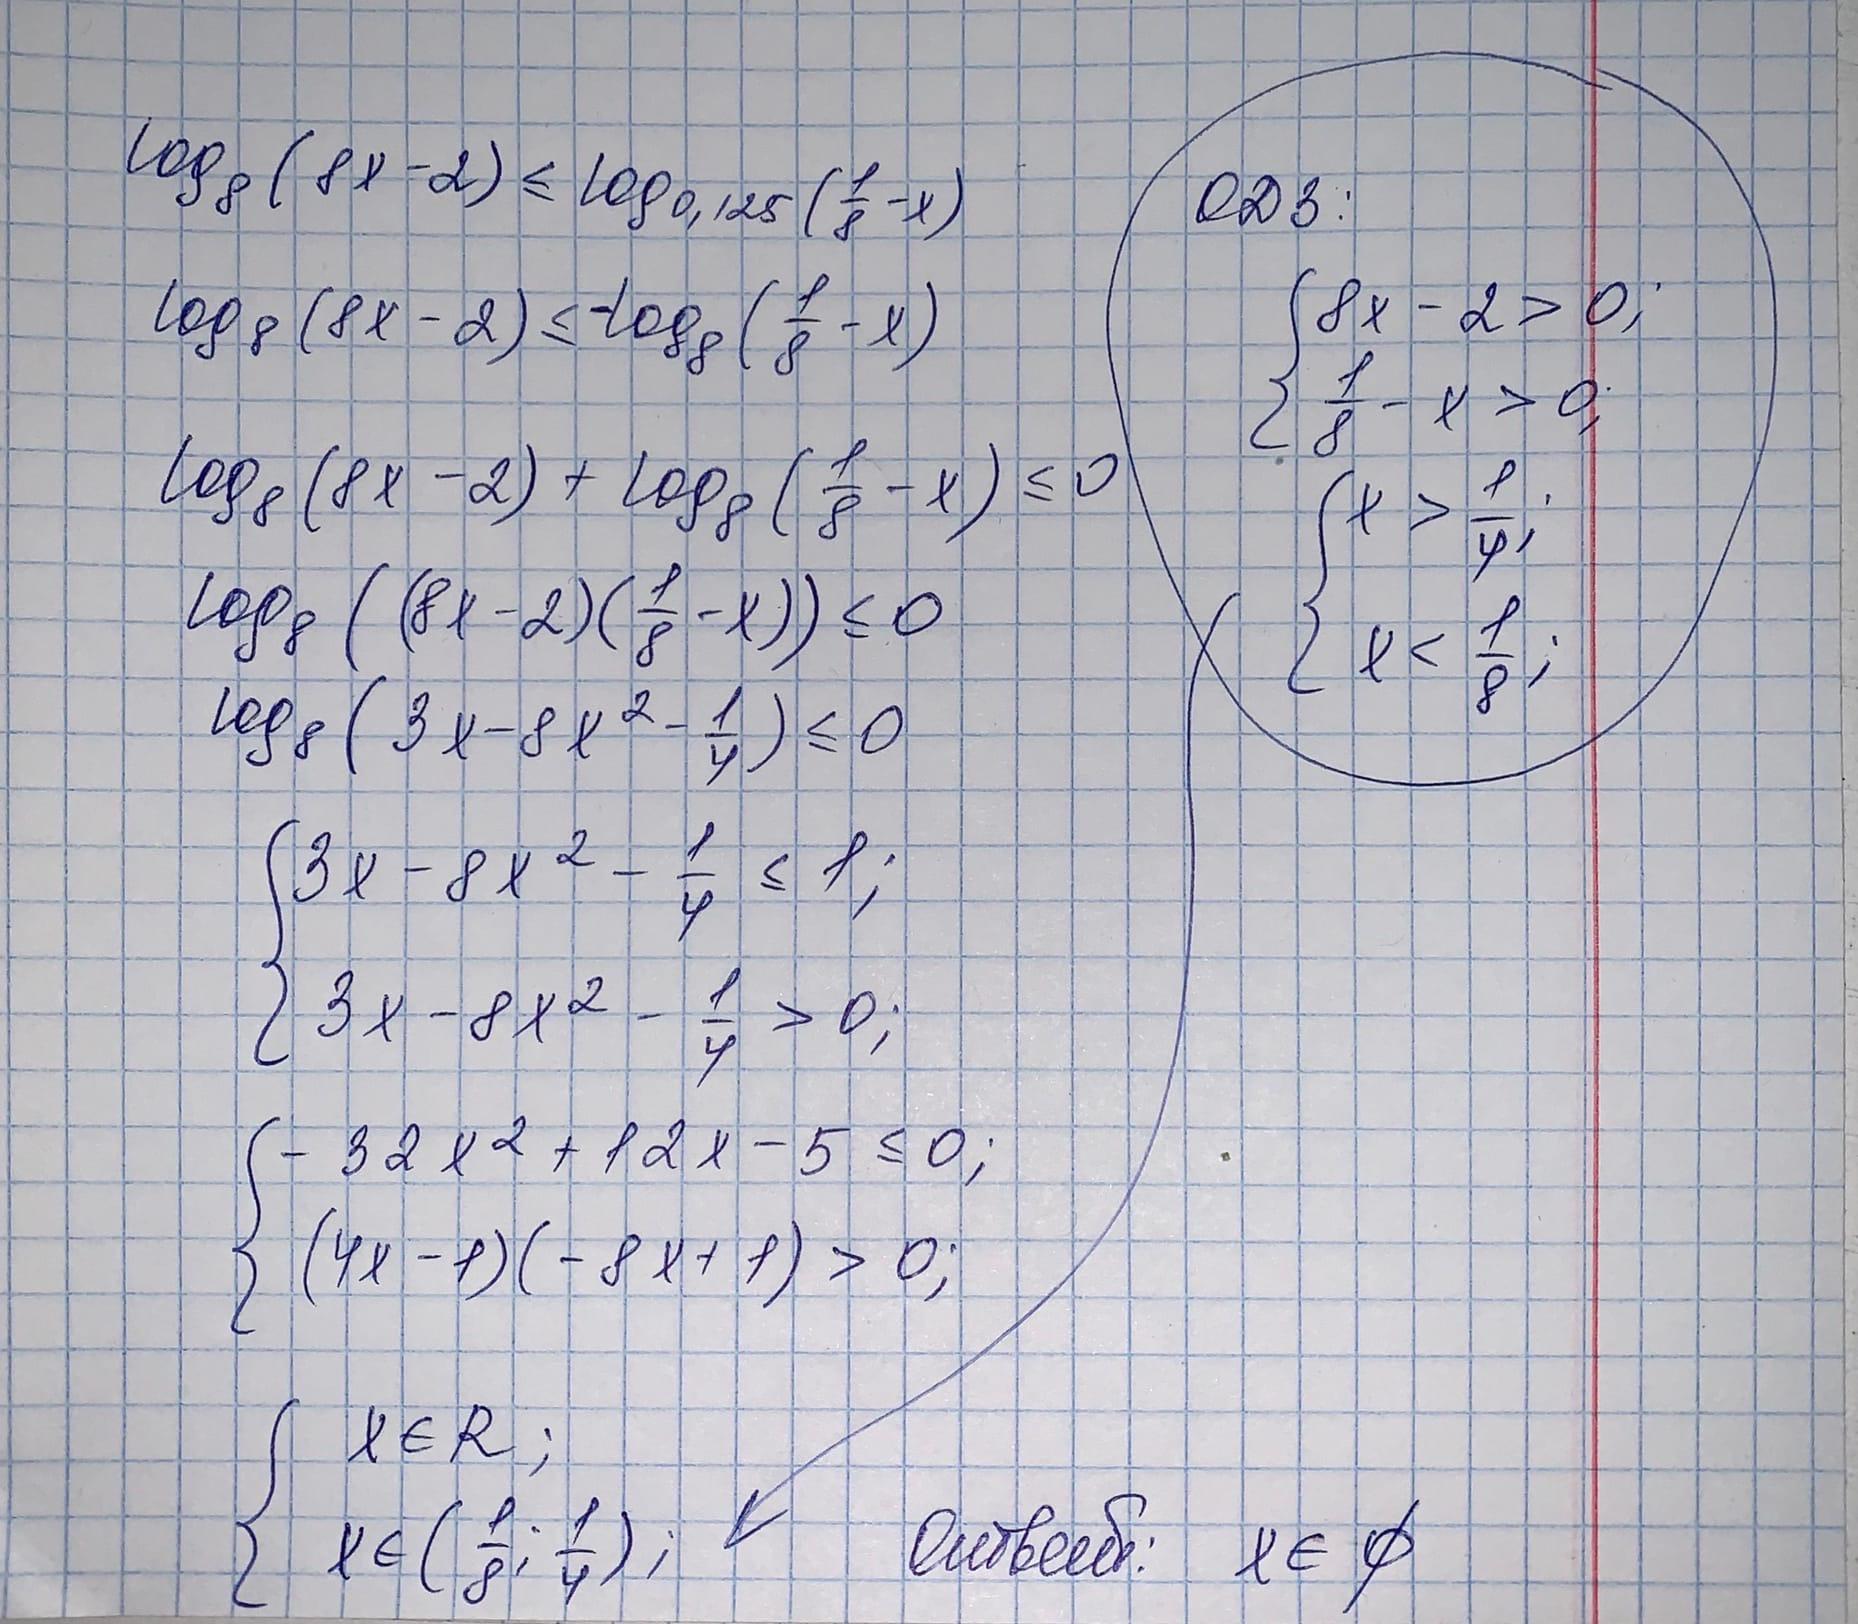 log₈(8x-2) ≤ log₀,₁₂₅(1/8-x)
log₈(8x-2) ≤ -log₈(1/8-x)
log₈(8x-2) + log₈(1/8-x) ≤ 0
log₈((8x-2)(1/8-x)) ≤ 0
log₈(3x-8x²-1/4) ≤ 0
{3x-8x²-1/4 ≤ 1;
{3x-8x²-1/4 > 0;
{-32x²+12x-5 ≤ 0;
{(4x-1)(-8x+1) > 0;
{x∈R;
{x∈(1/8; 1/4);
ОДЗ:
{8x-2 > 0;
{1/8-x > 0;
{x > 1/4;
{x < 1/8;
Ответ: x∈∅